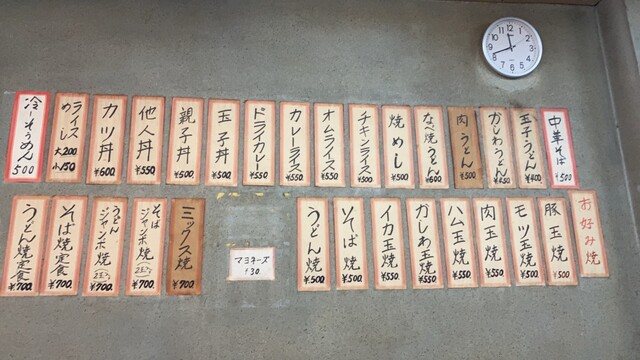 中華そば
¥500
玉子うどん
かしわうどん
肉うどん
¥500
なべ焼うどん
¥600
焼めし
¥500
チキンライス
¥500
オムライス
¥550
カレーライス
¥550
ドライカレー
¥550
玉子丼
¥500
親子丼
¥500
他人丼
¥550
カツ丼
¥600
ライス
めし
大200
小150
冷しそうめん
500
お好み焼
豚玉焼
¥500
モツ玉焼
¥500
肉玉焼
¥550
ハム玉焼
¥550
かしわ玉焼
¥550
イカ玉焼
¥550
そば焼
¥500
うどん焼
¥500
マヨネーズ
¥30
ミックス焼
¥700
そば
ジャンボ焼
¥700
うどん
ジャンボ焼
¥700
そば焼定食
¥700
うどん焼定食
¥700
12
1
2
3
4
5
6
7
8
9
10
11